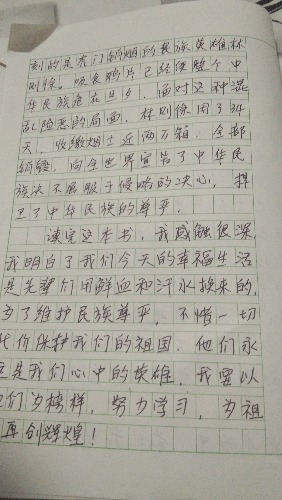 刻的是虎门销烟的民族英雄林
则徐。吸食鸦片已经使整个中
华民族危在旦夕，面对这种混
乱险恶的局面，林则徐用了34
天，收缴烟土近两万箱，全部
销毁，向全世界宣告了中华民
族决不屈服于侵略的决心，捍
卫了中华民族的尊严。
读完这本书，我感触很深，
我明白了我们今天的幸福生活
是先辈们用鲜血和汗水换来的，
为了维护民族尊严，不惜一切
代价保护我们的祖国。他们永
远是我们心中的英雄，我要以
他们为榜样，努力学习，为祖
再创辉煌！